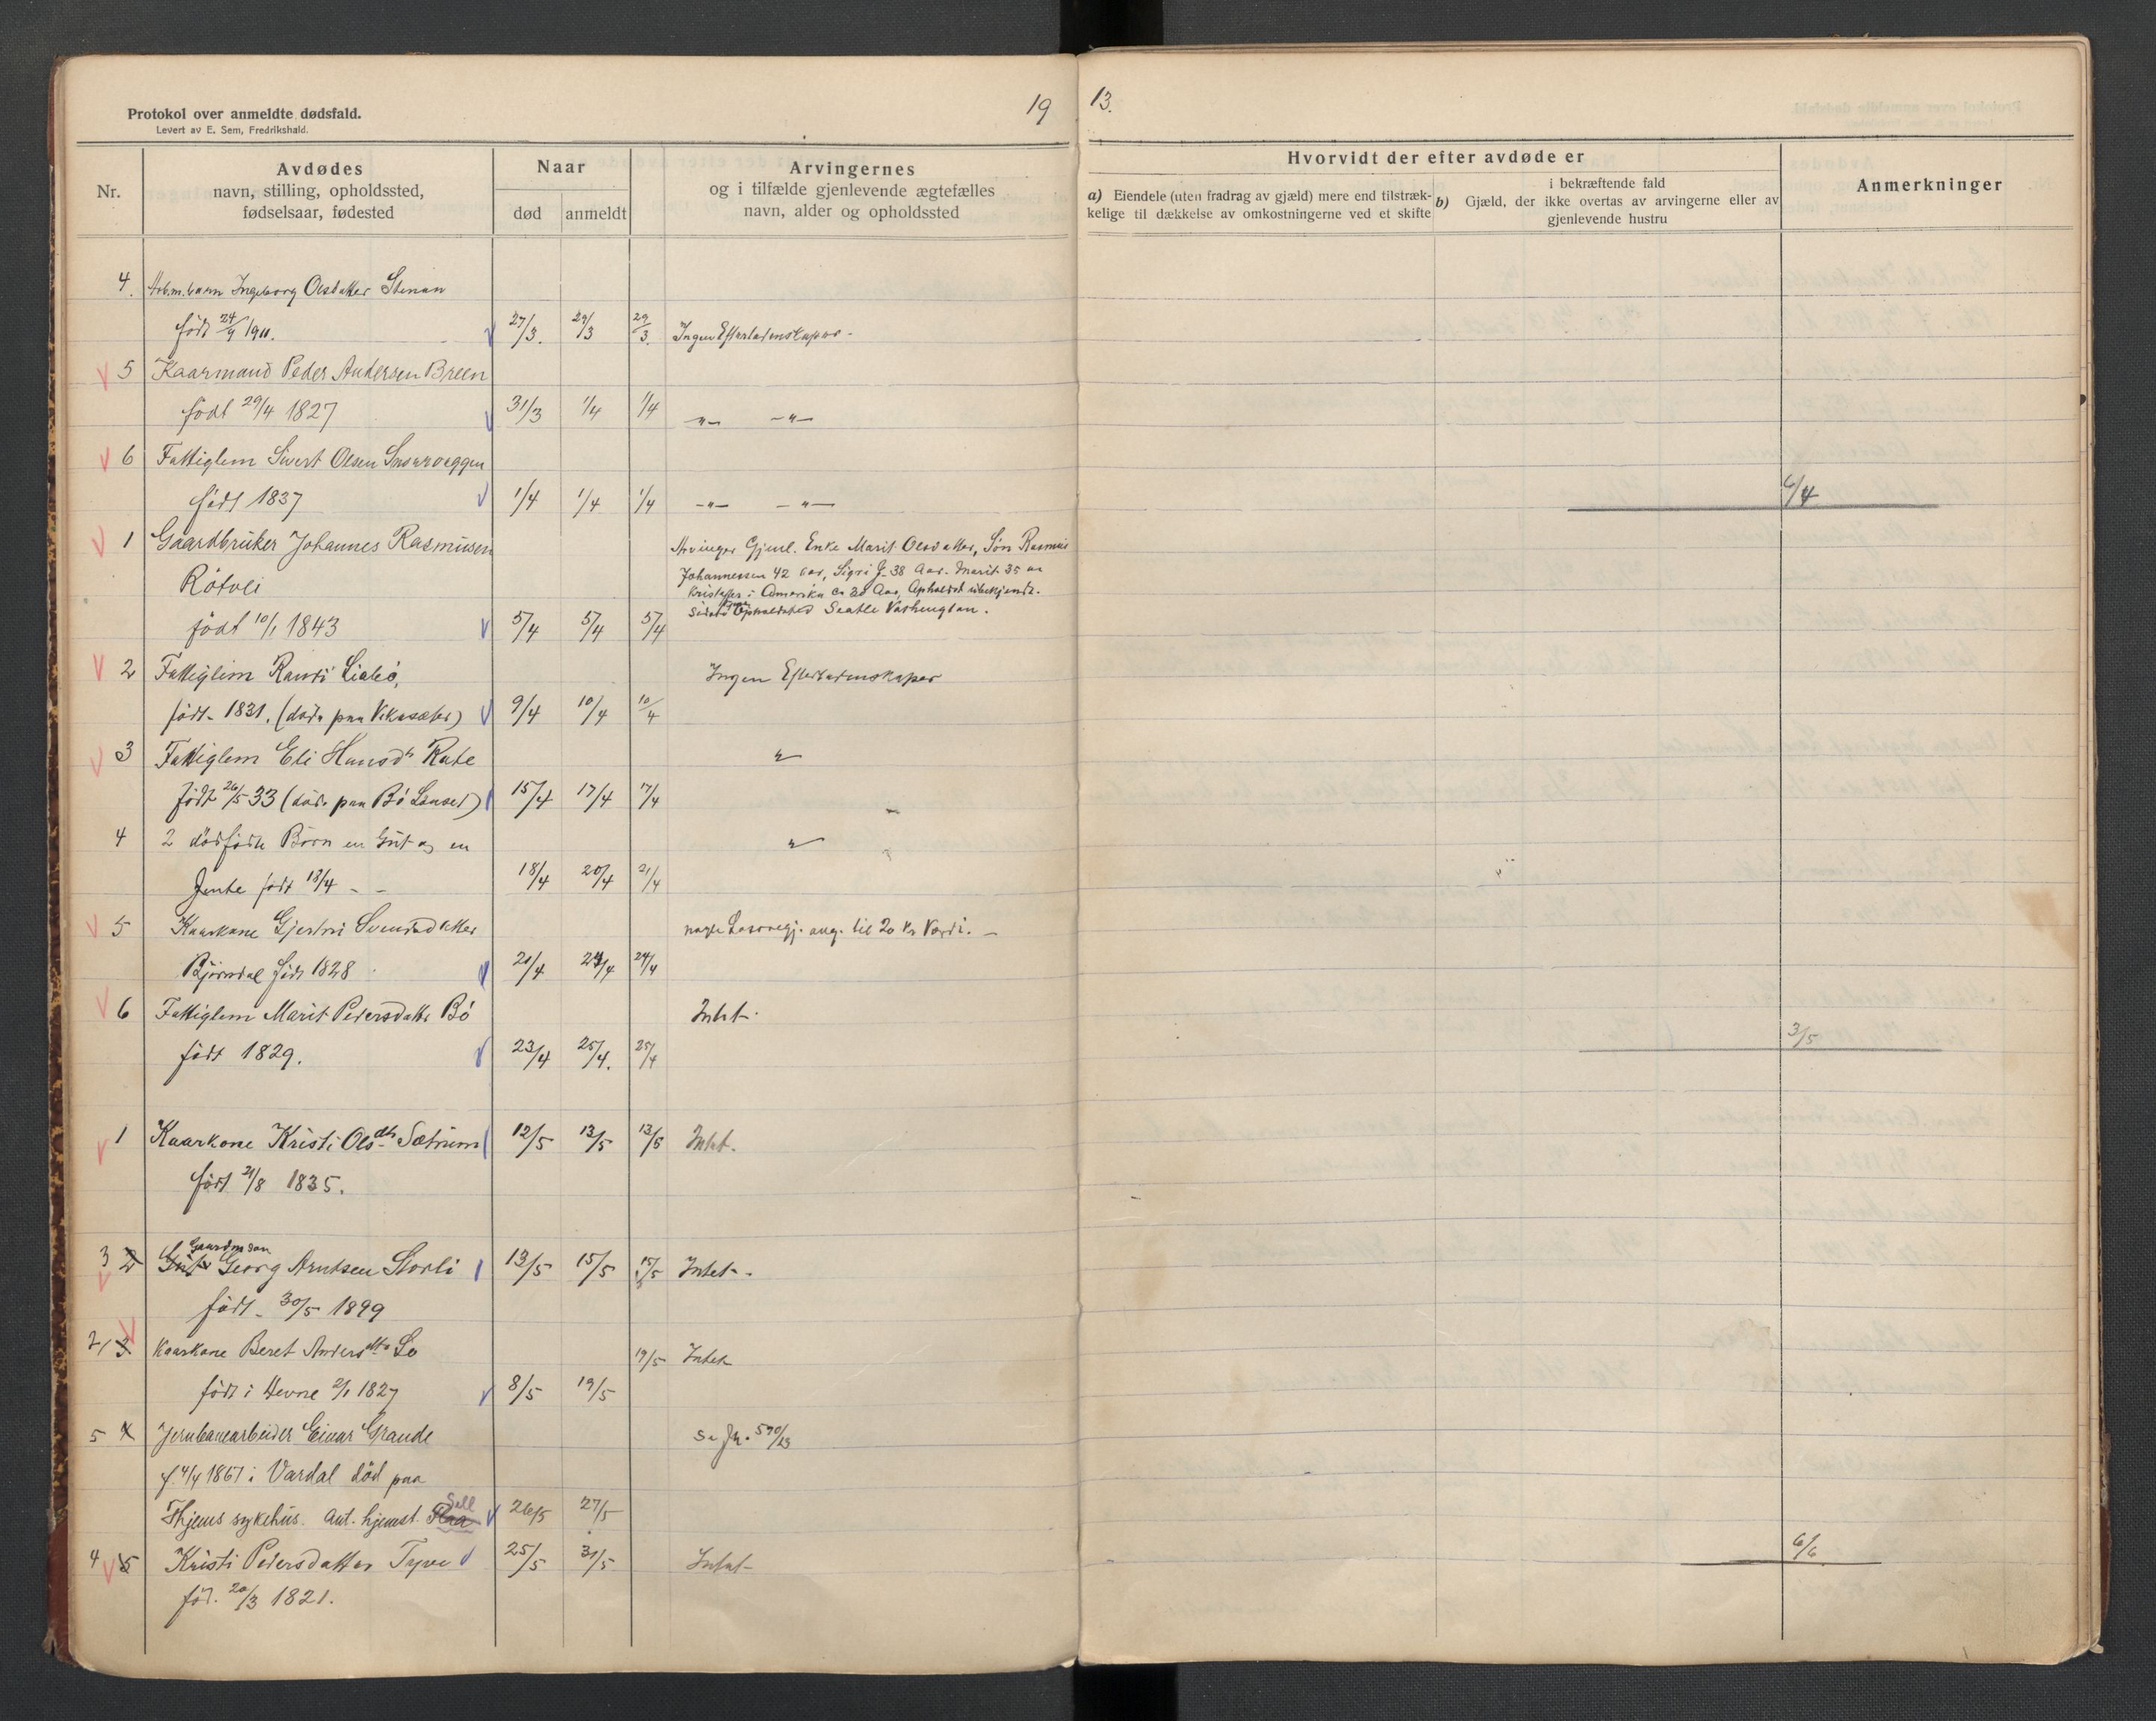 Protokol over anmeldte dødsfald.
Levert av E. Sem, Fredrikshald.
19 13.
Nr.
Avdødes
navn, stilling, opholdssted,
fødselsaar, fødested
Naar
død anmeldt
Arvingernes
og i tilfælde gjenlevende ægtefælles
navn, alder og opholdssted
Hvorvidt der efter avdøde er
a) Eiendele (uten fradrag av gjæld) mere end tilstræk-
kelige til dækkelse av omkostningerne ved et skifte
i bekræftende fald
b) Gjæld, der ikke overtas av arvingerne eller av
gjenlevende hustru
Anmerkninger
4. Arb.m. barn Ingeborg Olsdatter Stenan
født 24/9 1911. 27/3. 29/3 29/3. Ingen Efterladenskaper -
5 Kaarmand Peder Andersen Breen
født 29/4 1827 31/3 1/4 1/4 -"- -"-
6 Fattiglem Sivert Olsen
født 1837 1/4 1/4 1/4 -"- -"- 6/4
1 Gaardbruker Johannes Rasmusen Arvinger Gjenl. Enke Marit Olsdatter, Søn Rasmus
Røtvei Johannessen 42 aar, Sigri J. 38 Aar. Marit 35 aa
Kristoffer i Amerika ca 20 Aar, Opholdsst ubekjendt.
født 10/1 1843 5/4 5/4 5/4 Sidste Opholdsted Seatle Vashington.
2 Fattiglem Randi Liabø, Ingen Efterladenskaper
født - 1831. (døde paa Vikasæter) 9/4 10/4 10/4
3 Fattiglem Eli Hansdr Kate "
født 26/5 33 (døde paa Bø Lånset) 15/4 17/4 17/4
4 2 dødfødte Børn en Gut og en "
Jente født 18/4 - - 18/4 20/4 21/4
5 Kaarkone Gjertru Svendsdatter nogle Løsøregj. ang. til 20 Kr Værdi. -
Bjørndal født 1828 21/4 24/4 24/4
6 Fattiglem Marit Pedersdatter Bø Intet.
født 1829. 23/4 25/4. 25/4 3/5
1 Kaarkone Kristi Olsdtr Sætrum 12/5 13/5 13/5 Intet.
født 21/8 1835.
Gaardmdsøn
3 2 Gut Georg Arntsen Storli 13/5 15/5 15/5 Intet -.
født - 30/5 1899
2 3. Kaarkone Beret Andersdtr Lo 19/5 Intet
født i Hevne 2/1 1827 8/5 19/5
5 4 Jernbanearbeider Einar Grande Se Jr. 590/13
f. 4/4 1861 i Vardal død paa
Sell
Thjems sykehus. Ant. hjemst. Flaa 26/5 27/5
4 5 Kristi Pedersdatter Tyve 25/5 31/5 Intet - 6/6
fød. 20/3 1821.